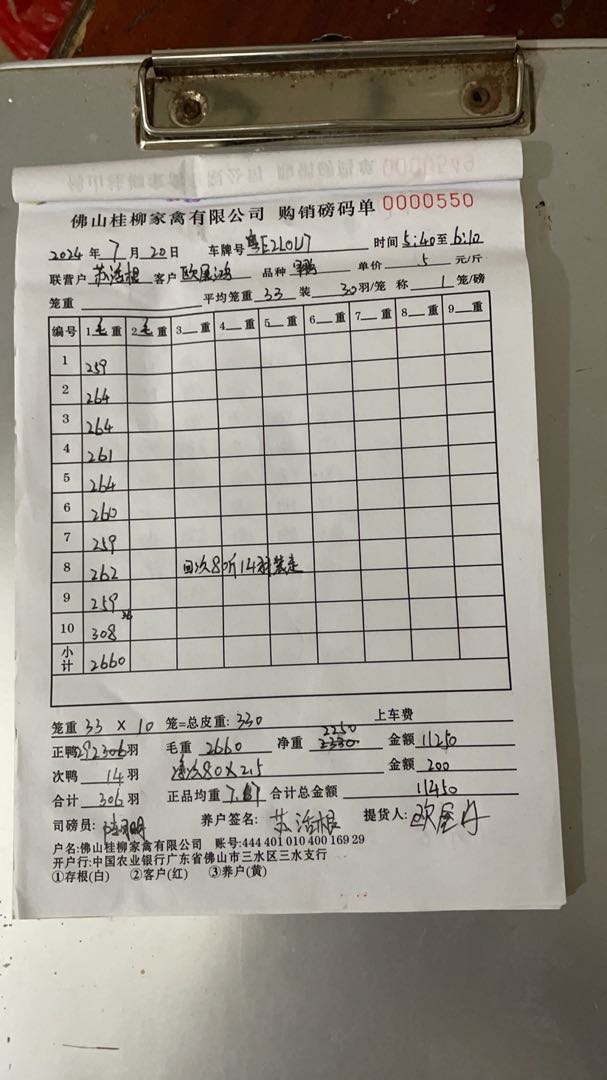 佛山桂柳家禽有限公司 购销磅码单 0000550
2024 年 7 月 20 日 车牌号 粤E210U7 时间 5:40 至 6:10
联营户 苏活根 客户 欧屋鸿 品种 单价 5 元/斤
笼重 平均笼重 33 装 30 羽/笼 称 1 笼/磅
编号 1 毛 重 2 毛 重 3 重 4 重 5 重 6 重 7 重 8 重 9 重
1 259
2 264
3 264
4 261
5 264
6 260
7 259
8 262 次80斤14羽装走
9 259
10 308 36
小计 2660
笼重 33 × 10 笼=总皮重: 330 上车费
2250
正鸭 292 306 羽 毛重 2660 净重 2330 金额 11250
次鸭 14 羽 次80×2.5 金额 200
合计 306 羽 正品均重 7. 合计总金额 11450
司磅员: 养户签名: 苏活根 提货人:
户名:佛山桂柳家禽有限公司 账号:444 401 010 400 169 29
开户行:中国农业银行广东省佛山市三水区三水支行
①存根(白) ②客户(红) ③养户(黄)